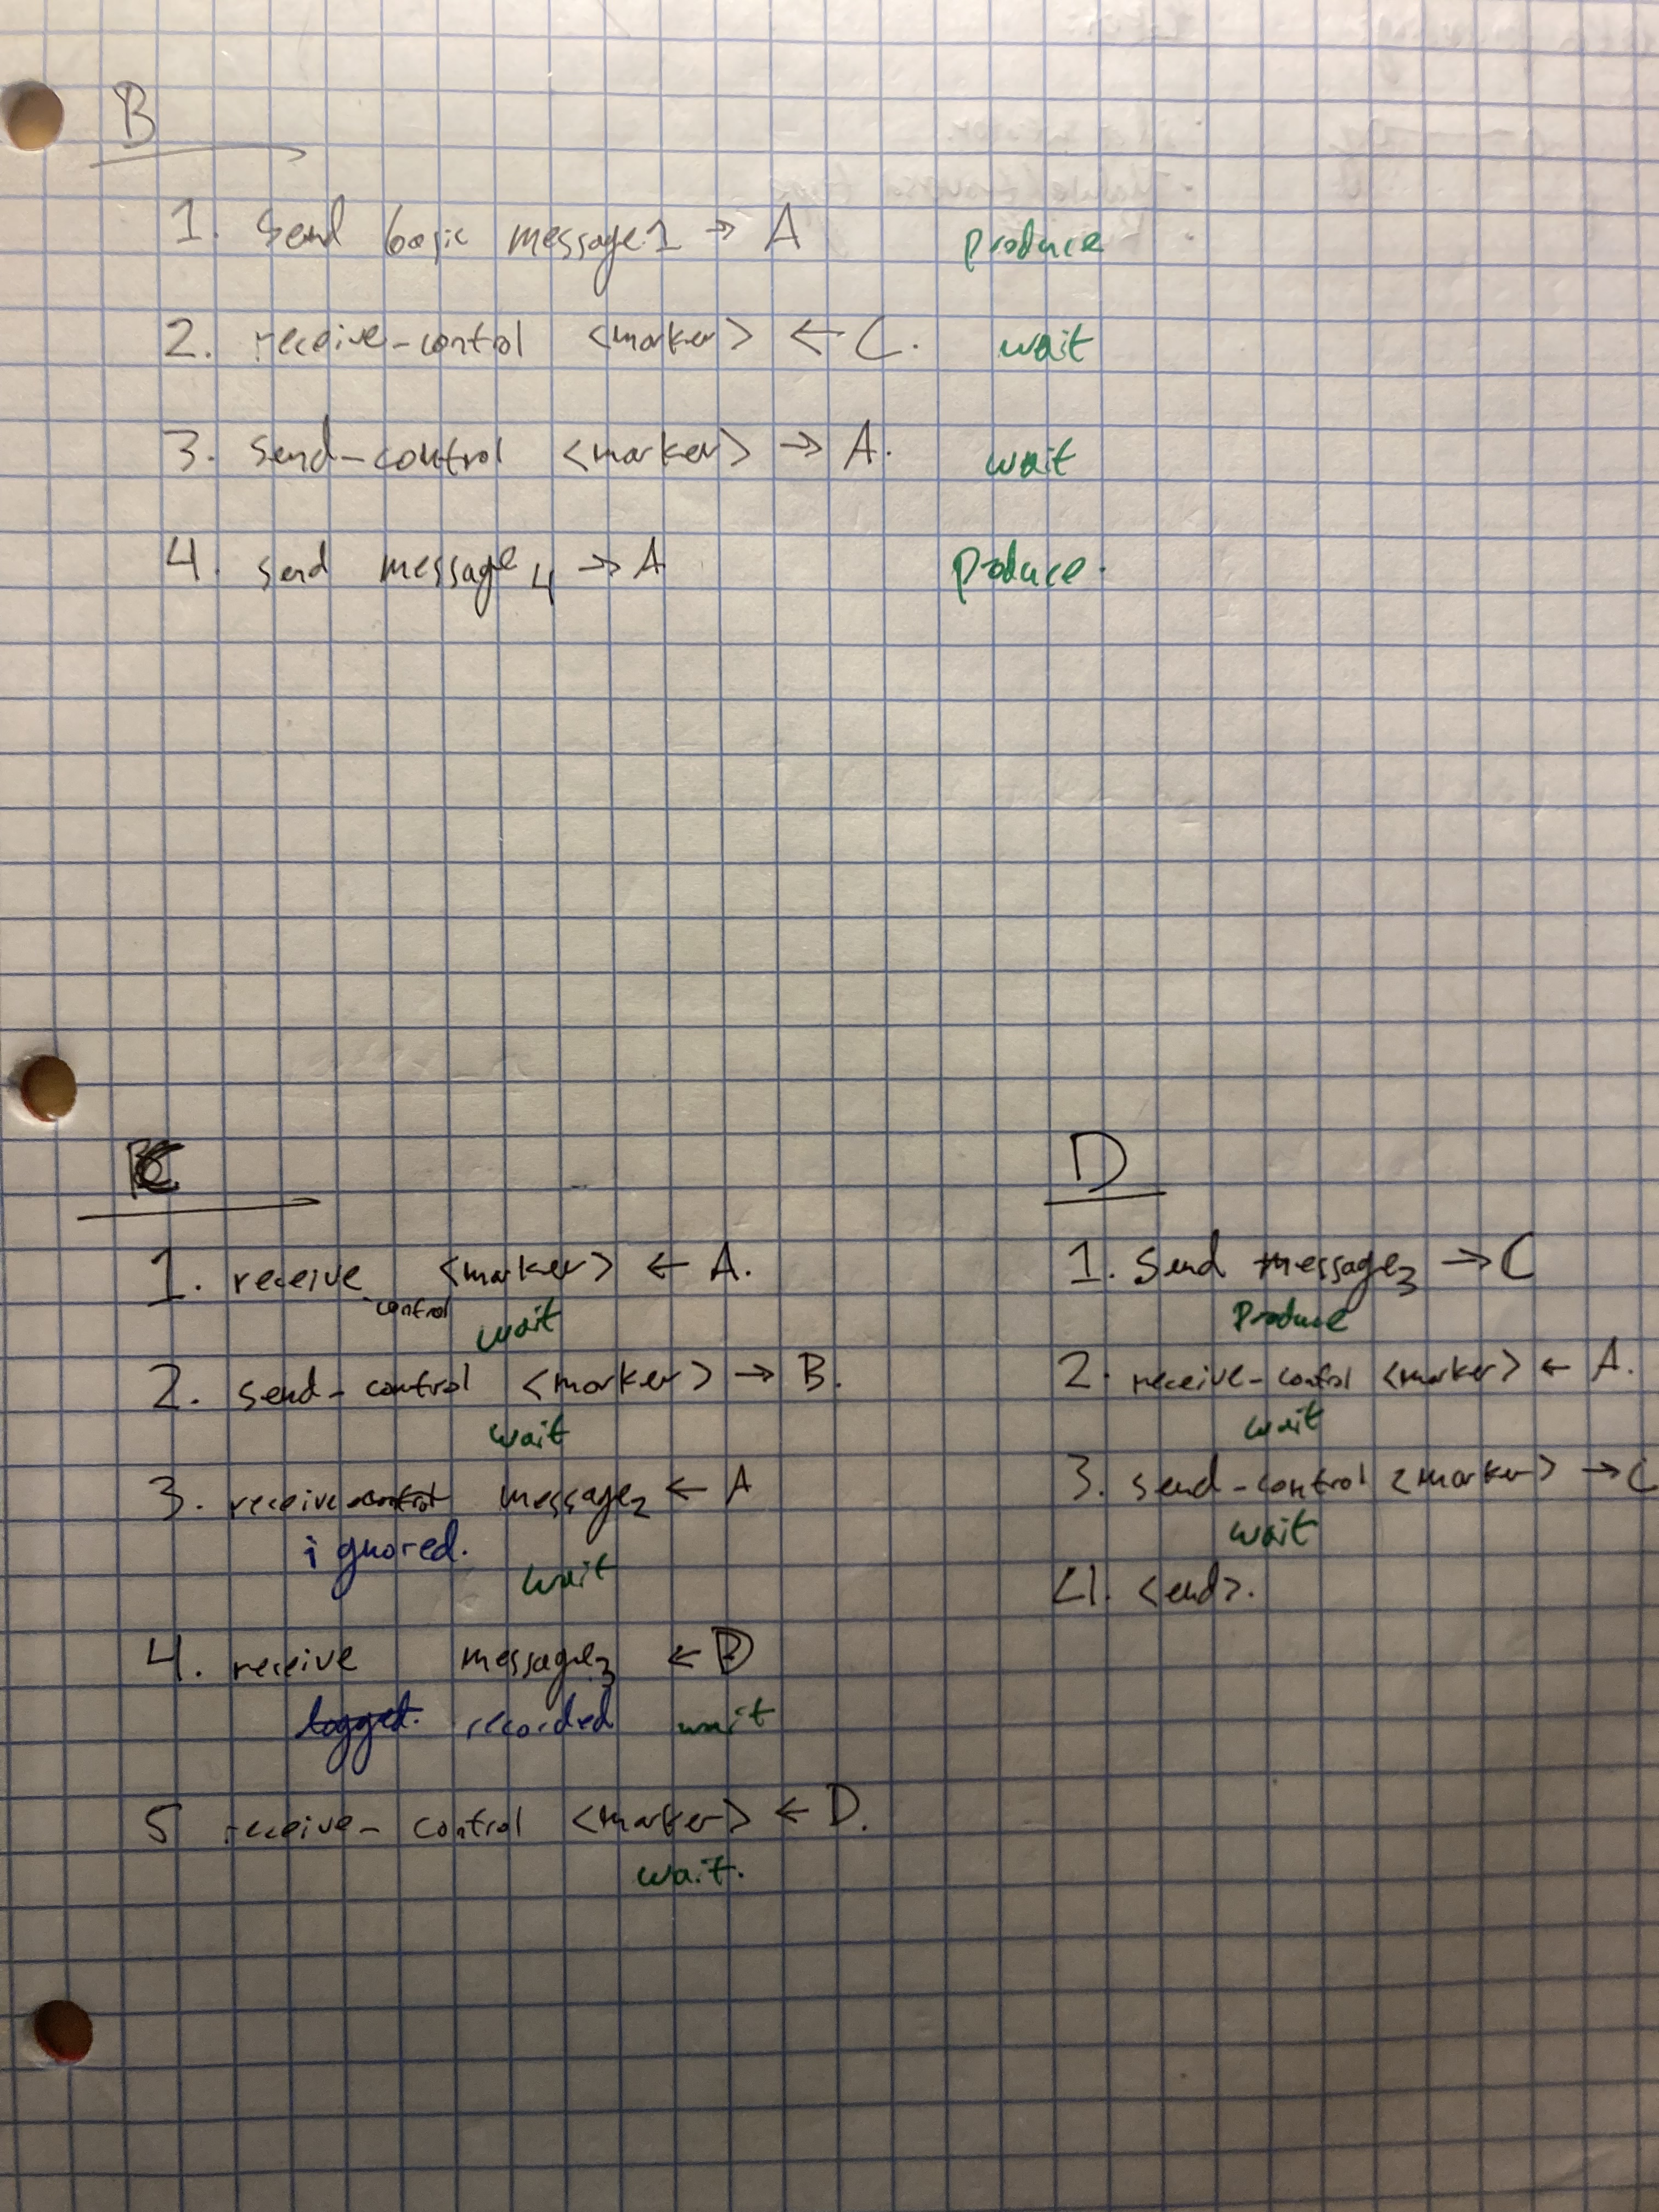 B
1. send basic message1 → A produce
2. receive-control <marker> ← C. wait
3. send-control <marker> → A. wait
4. send message4 → A produce.
C
1. receive-control <marker> ← A.
wait
2. send-control <marker> → B.
wait
3. receive-control message2 ← A
ignored.
wait
4. receive message3 ← D
logged. recorded wait
5 receive-control <marker> ← D.
wait.
D
1. Send message3 → C
Produce
2. receive-control <marker> ← A.
wait
3. send-control <marker> → C
wait
4. <end>.